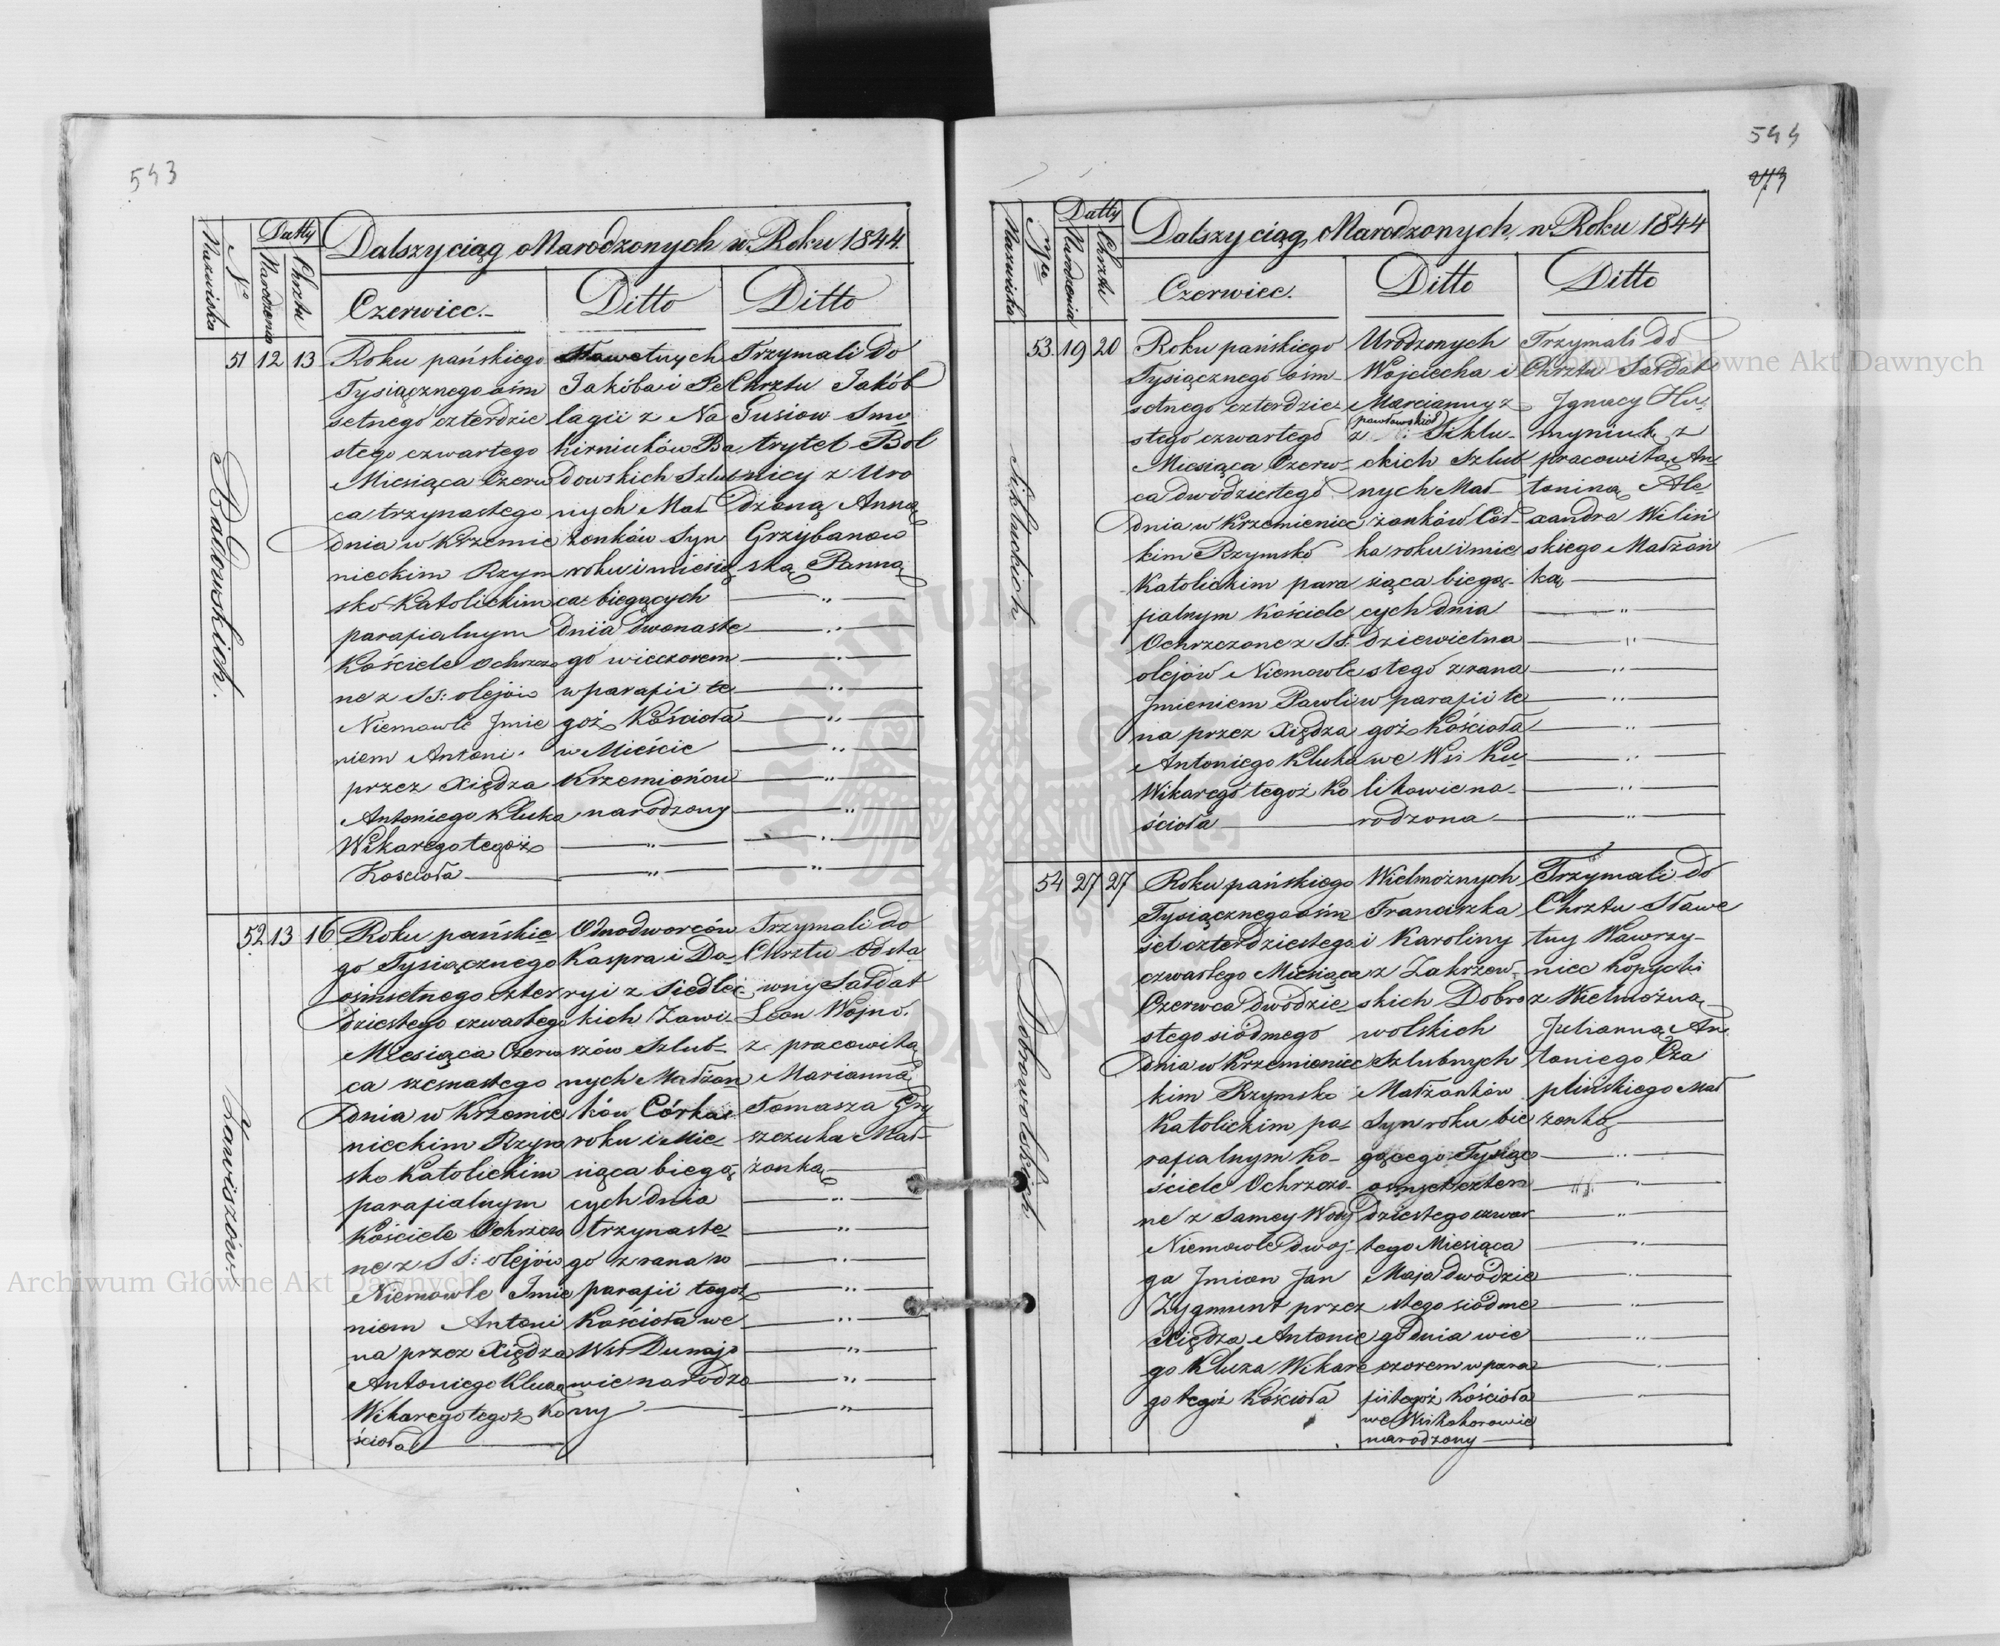 543
Nazwiska
No
Datty
Narodzenia
Chrztu
Dalszy ciąg Narodzonych w Roku 1844
Czerwiec.
Ditto
Ditto
Badowskich.
51
12
13
Roku pańskiego
Tysiącznego ośm
setnego czterdzie
stego czwartego
Miesiąca Czerw
ca trzynastego
dnia w Krzemie
nieckim Rzym
sko Katolickim
parafialnym
Kościele ochrzczo
ne z SS: olejów
Niemowle Jmie
niem Antoni
przez Xiędza
Antoniego Kluka
Wikarego tegoż
Kościoła
Sławetnych
Jakóba i Pe
lagii z Na
hirniuków Ba
dowskich Szlub
nych Mał
żonków Syn
roku i miesią
ca biegących
dnia dwunaste
go wieczorem
w parafii te
goż Kościoła
w Mieście
Krzemieńcu
narodzony
Trzymali do
Chrztu Jakób
Gusiow Smo
trytel Bol
nicy z Uro
dzoną Anną
Grzybanow
ską Panną
Zawiszów
52
13
16
Roku pańskie
go Tysiącznego
ośmsetnego czter
dziestego czwartego
Miesiąca Czerw
ca szesnastego
dnia w Krzemie
nieckim Rzym
sko Katolickim
parafialnym
Kościele Ochrzczo
ne z SS: olejów
Niemowle Jmie
niem Antoni
na przez Xiędza
Antoniego Kluka
Wikarego tegoż Ko
ścioła
Odnodworców
Kaspra i Da-
ryi z Siedlec
kich Zawi-
szów Szlub-
nych Małżon
ków Córka
roku i Mie-
siąca biegą
cych dnia
trzynaste-
go z rana w
parafii tegoż
Kościoła we
Wsi Dunajo
wie narodzo
ny
Trzymali do
Chrztu Odsta
wny Sałdat
Leon Wojno.
z pracowitą
Marianną
Tomasza Gry
szczuka Mał-
żonką
544
273
Nazwiska
Nru
Datty
Narodzenia
Chrztu
Dalszy ciąg Narodzonych w Roku 1844
Czerwiec.
Ditto
Ditto
Sikluckich
53.
19
20
Roku pańskiego
Tysiącznego ośm-
setnego czterdzie-
stego czwartego
Miesiąca Czerw-
ca dwódziestego
dnia w Krzemieniec
kim Rzymsko
Katolickim para
fialnym Kościele
Ochrzczone z SS:
olejów Niemowle
Jmieniem Pawli
na przez Xiędza
Antoniego Kluka
Wikarego tegoż Ko
ścioła
Urodzonych
Wojciecha i
Marcianny z
pawłowskich
z Siklu-
ckich Szlub
nych Mał-
żonków Cór-
ka roku i mie
siąca biegą-
cych dnia
dziewietna
stego z rana
w parafii te
goż Kościoła
we Wsi Ku
likowie na-
rodzona
Trzymali do
Chrztu Sałdat
Jgnacy Hu-
myniuk z
pracowitą An-
toniną Ale-
xandra Wiliń
skiego Małżon
ką
Dobrowolskich
54
27
27
Roku pańskiego
Tysiącznego ośm
set czterdziestego
czwartego Miesiąca
Czerwca dwódzie-
stego siódmego
dnia w Krzemieniec
kim Rzymsko
Katolickim pa-
rafialnym Ko-
ściele Ochrzczo-
ne z samey Wody
Niemowle dwoj-
ga Jmion Jan
Zygmunt przez
Xiędza Antonie
go Kluka Wikare
go tegoż Kościoła
Wielmożnych
Franciszka
i Karoliny
z Zakrzew-
skich Dobro
wolskich
Szlubnych
Małżonków
Syn roku bie
gącego Tysiąc
ośmset czter
dziestego czwar
tego Miesiąca
Maja dwódzie
stego siódme
go dnia wie
czorem w para
fii tegoż Kościoła
we Wsi Kokorowie
narodzony
Trzymali do
Chrztu Sławe
tny Wawrzy-
niec Kopycki
z Wielmożną
Julianną An-
toniego Cza
plińskiego Mał
żonką
Archiwum Główne Akt Dawnych
Archiwum Główne Akt Dawnych